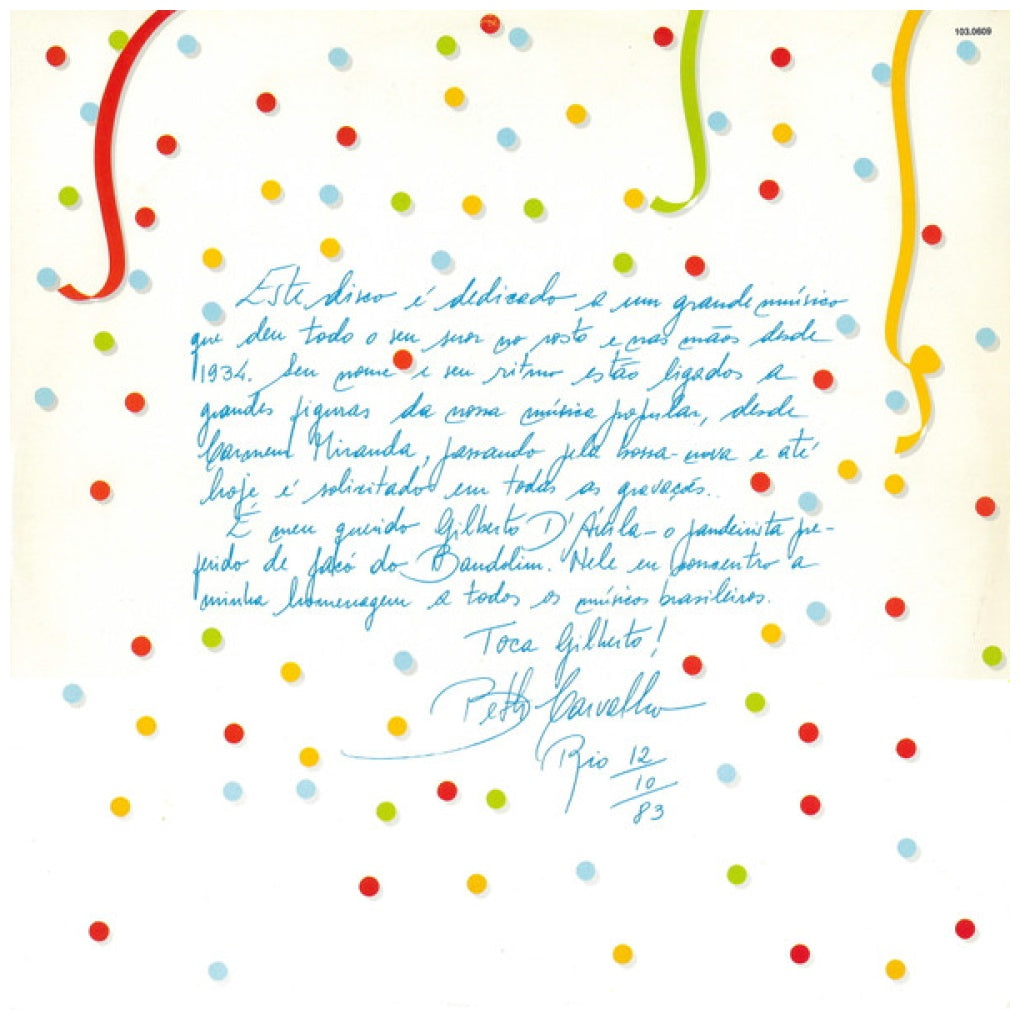 103.0609
Este disco é dedicado a um grande músico
que deu todo o seu suor no rosto e nas mãos desde
1934. Seu nome e seu ritmo estão ligados a
grandes figuras da nossa música popular, desde
Carmem Miranda, passando pela bossa-nova e até
hoje é solicitado em todas as gravações.
É meu querido Gilberto D'Ávila - o pandeirista pre-
ferido de Jacó do Bandolim. Nele eu concentro a
minha homenagem a todos os músicos brasileiros.
Toca Gilberto!
Beth Carvalho
Rio 12
10
83